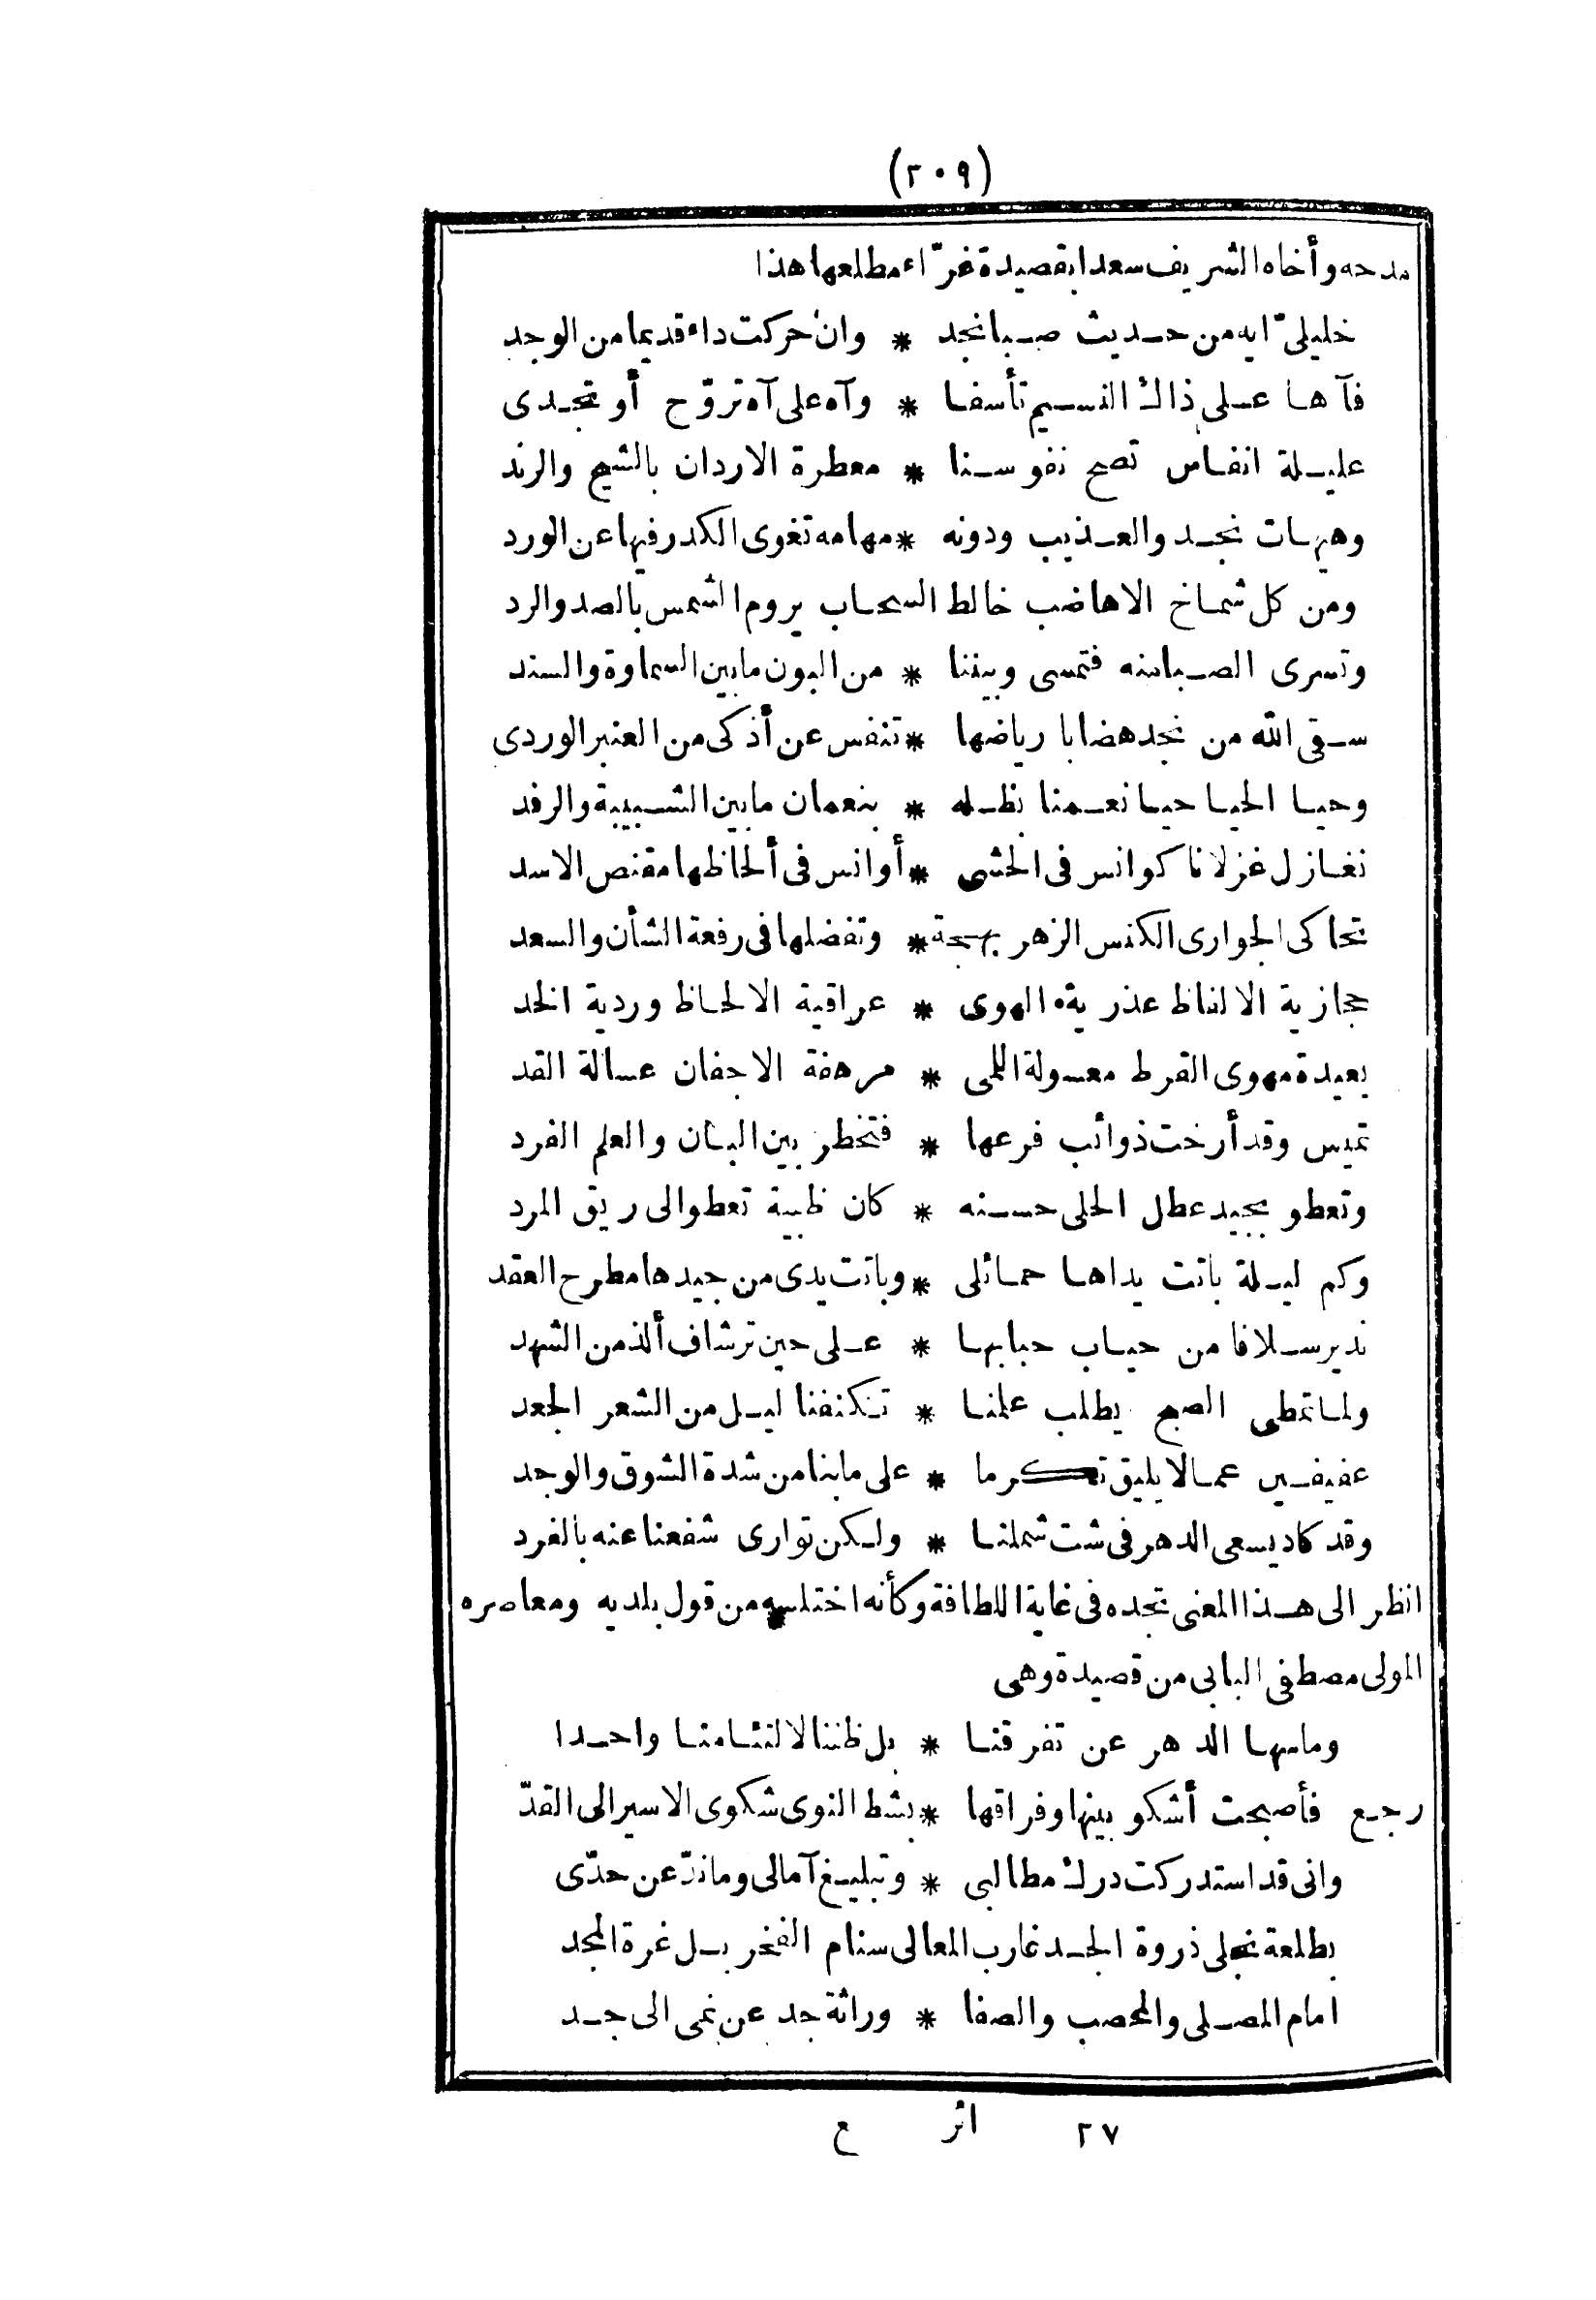 (٢٠٩)
مدحه وأخاه الشريف سعدا بقصيدة غرّاء مطلعها هذا
خليلىّ ايه من حديث صبا نجد * وان حركت داء قديما من الوجد
فآها على ذاك النسيم تأسفا * وآه على آه تروّح أو تجدى
عليلة انفاس تصح نفوسنا * معطرة الاردان بالشيح والرند
وهيهات نجد والعذيب ودونه * مهامه تغوى الكدر فيها عن الورد
ومن كل شماخ الاهاضب خالط السحاب يروم الشمس بالصد والرد
وتسرى الصبا منه فتمسى وبيننا * من البون ما بين السماوة والسند
سقى الله من نجد هضابا رياضها * تنفس عن أذكى من العنبر الوردى
وحيا الحيا حيا نعمنا بظله * بنعمان ما بين الشبيبة والرفد
نغازل غزلانا كوانس فى الحشى * أوانس فى ألحاظها مقنص الاسد
تحاكى الجوارى الكنس الزهر بهجة * وتفضلها فى رفعة الشأن والسعد
حجازية الالفاظ عذرية الهوى * عراقية الالحاظ وردية الخد
بعيدة مهوى القرط معسولة اللمى * مرهفة الاجفان عسالة القد
تميس وقد أرخت ذوائب فرعها * فتخطر بين البان والعلم الفرد
وتعطو بجيد عطل الحلى حسنه * كان ظبية تعطو الى ريق المرد
وكم ليلة باتت يداها حمائلى * وباتت يدى من جيدها مطرح العقد
ندير سلافا من حباب حبابها * على حين ترشاف ألذ من الشهد
ولما تمطى الصبح يطلب علمنا * تكنفنا ليل من الشعر الجعد
عفيفين عما لا يليق تكرما * على ما بنا من شدة الشوق والوجد
وقد كاد يسعى الدهر فى شت شملنا * ولكن توارى شفعنا عنه بالفرد
انظر الى هذا المعنى تجده فى غاية اللطافة وكأنه اختلسه من قول بلديه ومعاصره
المولى مصطفى البابى من قصيدة وهى
وما سها الدهر عن تفرقنا * بل ظننا لالتئامنا واحدا
رجع فأصبحت أشكو بينها وفراقها * بشط النوى شكوى الاسير الى القدّ
وانى قد استدركت درك مطالبى * وتبليغ آمالى وما ندّ عن حدّى
بطلعة نجلى ذروة المجد غارب المعالى سنام الفخر بل غرة المجد
امام المصلى والمحصب والصفا * وراثة جد عن نمى الى جد
٢٧ اثر ع